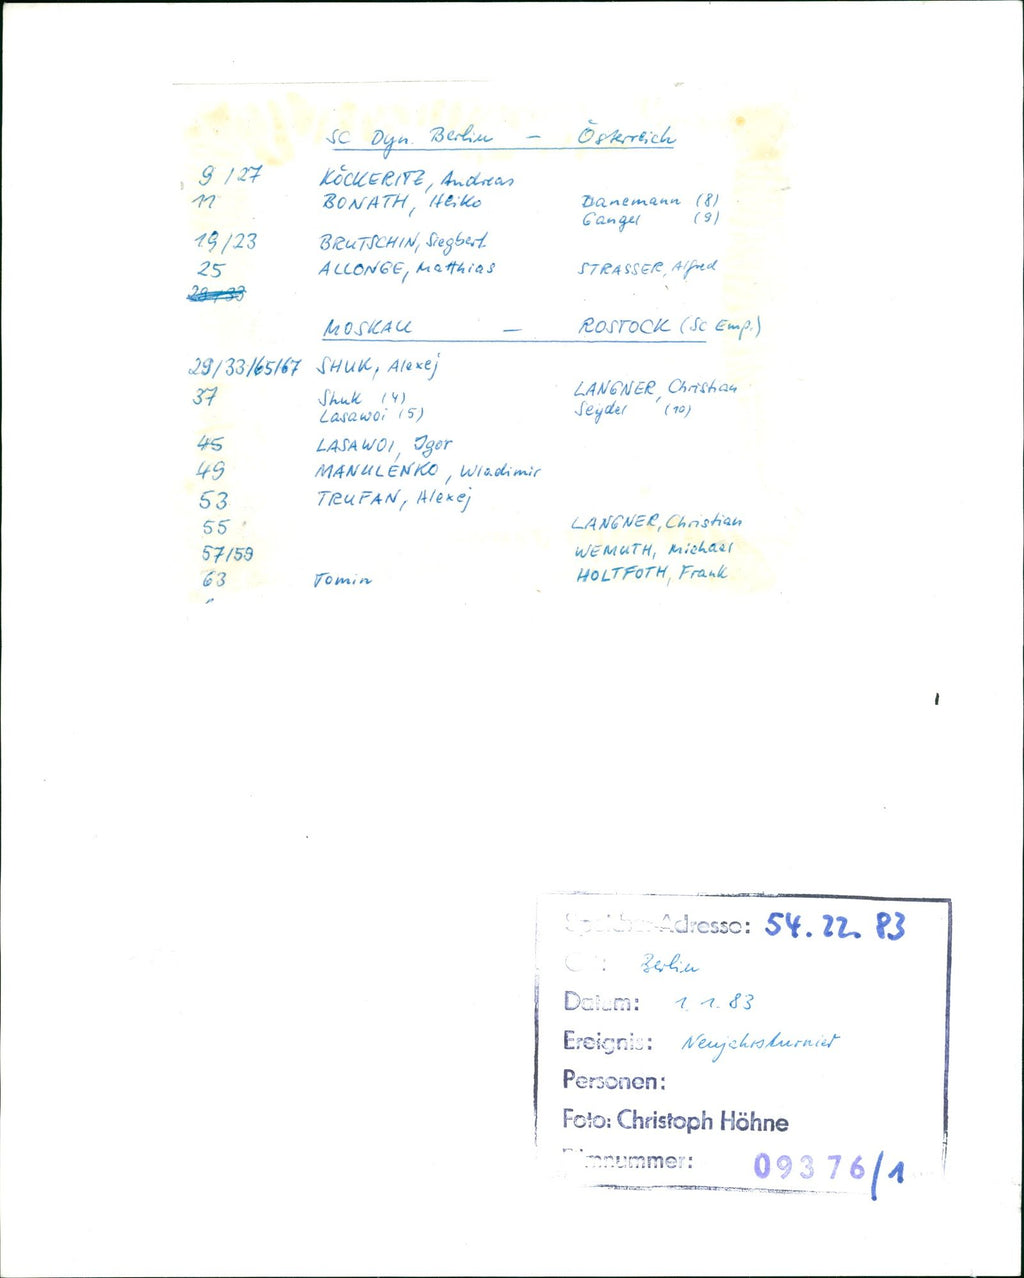 SC Dyn. Berlin – Österreich
9/27 KÖCKERITZ, Andreas
11 BONATH, Heiko Danemann (8)
Gangel (9)
19/23 BRUTSCHIN, Siegbert
25 ALLONGE, Matthias STRASSER, Alfred
29/33
MOSKAU – ROSTOCK (SC Emp.)
29/33/65/67 SHUK, Alexej
37 Shuk (4) LANGNER, Christian
Lasawoi (5) Seydel (10)
45 LASAWOI, Igor
49 MANULENKO, Wladimir
53 TRUFAN, Alexej
55 LANGNER, Christian
57/59 WEMUTH, Michael
63 Tomin HOLTFOTH, Frank
Speicher-Adresse: 54.22.83
Ort: Berlin
Datum: 1.1.83
Ereignis: Neujahrsturnier
Personen:
Foto: Christoph Höhne
Filmnummer: 09376/1